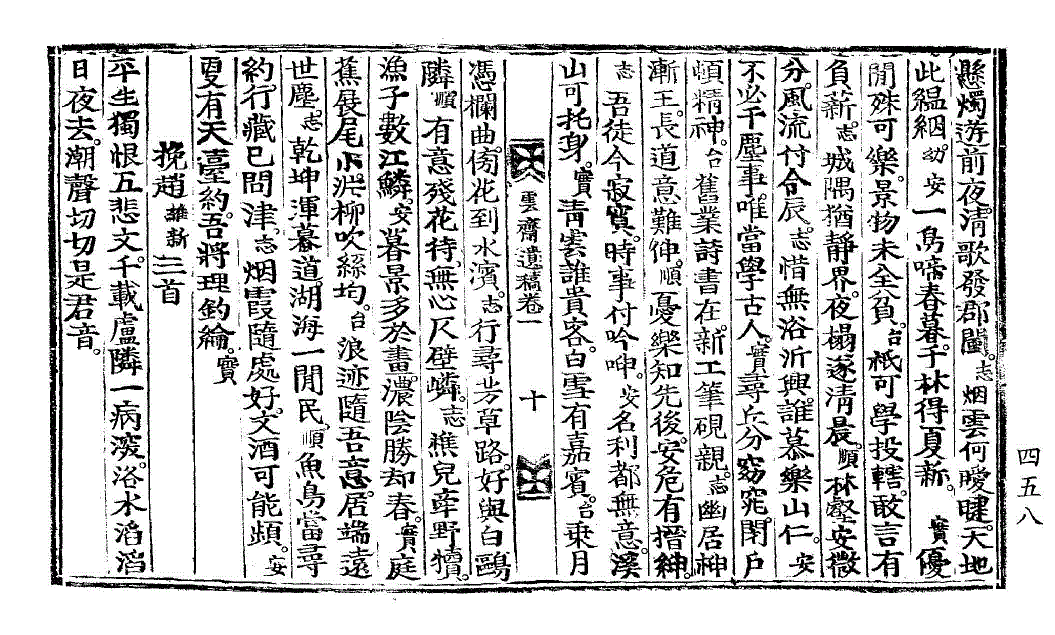 懸燭遊前夜。淸歌發郡闉。志烟雲何曖曃。天地
此縕絪。幼安一鳥啼春暮。千林得夏新。實優
閒殊可樂。景物未全貧。台祗可學投轄。敢言有
負薪。志城隅猶靜界。夜榻遂淸晨。順林壑安微
分。風流付令辰。志惜無浴沂興。誰慕樂山仁。安
不必干塵事。唯當學古人。實尋丘分窈窕。閉戶
頓精神。台舊業詩書在。新工筆硯親。志幽居神
漸王。長道意難伸。順憂樂知先後。安危有搢紳。
志吾徒今寂寞。時事付吟呻。安名利都無意。溪
山可托身。實靑雲誰貴客。白雪有嘉賓。台乘月
雲齋遺稿卷一 十
憑欄曲。傍花到水濱。志行尋芳草路。好與白鷗
隣。順有意殘花待。無心尺壁嶙。志樵兒牽野犢。
漁子數江鱗。安暮景多於畫。濃陰勝却春。實庭
蕉展尾小。汫柳吹絲均。台浪迹隨吾意。居端遠
世塵。志乾坤渾暮道。湖海一閒民。順魚鳥當尋
約。行藏已問津。志烟霞隨處好。文酒可能頻。安
更有天臺約。吾將理釣綸。實
挽趙雄新三首
平生獨恨五悲文。千載盧隣一病深。浴水滔滔
日夜去。潮聲切切是君音。
四五八